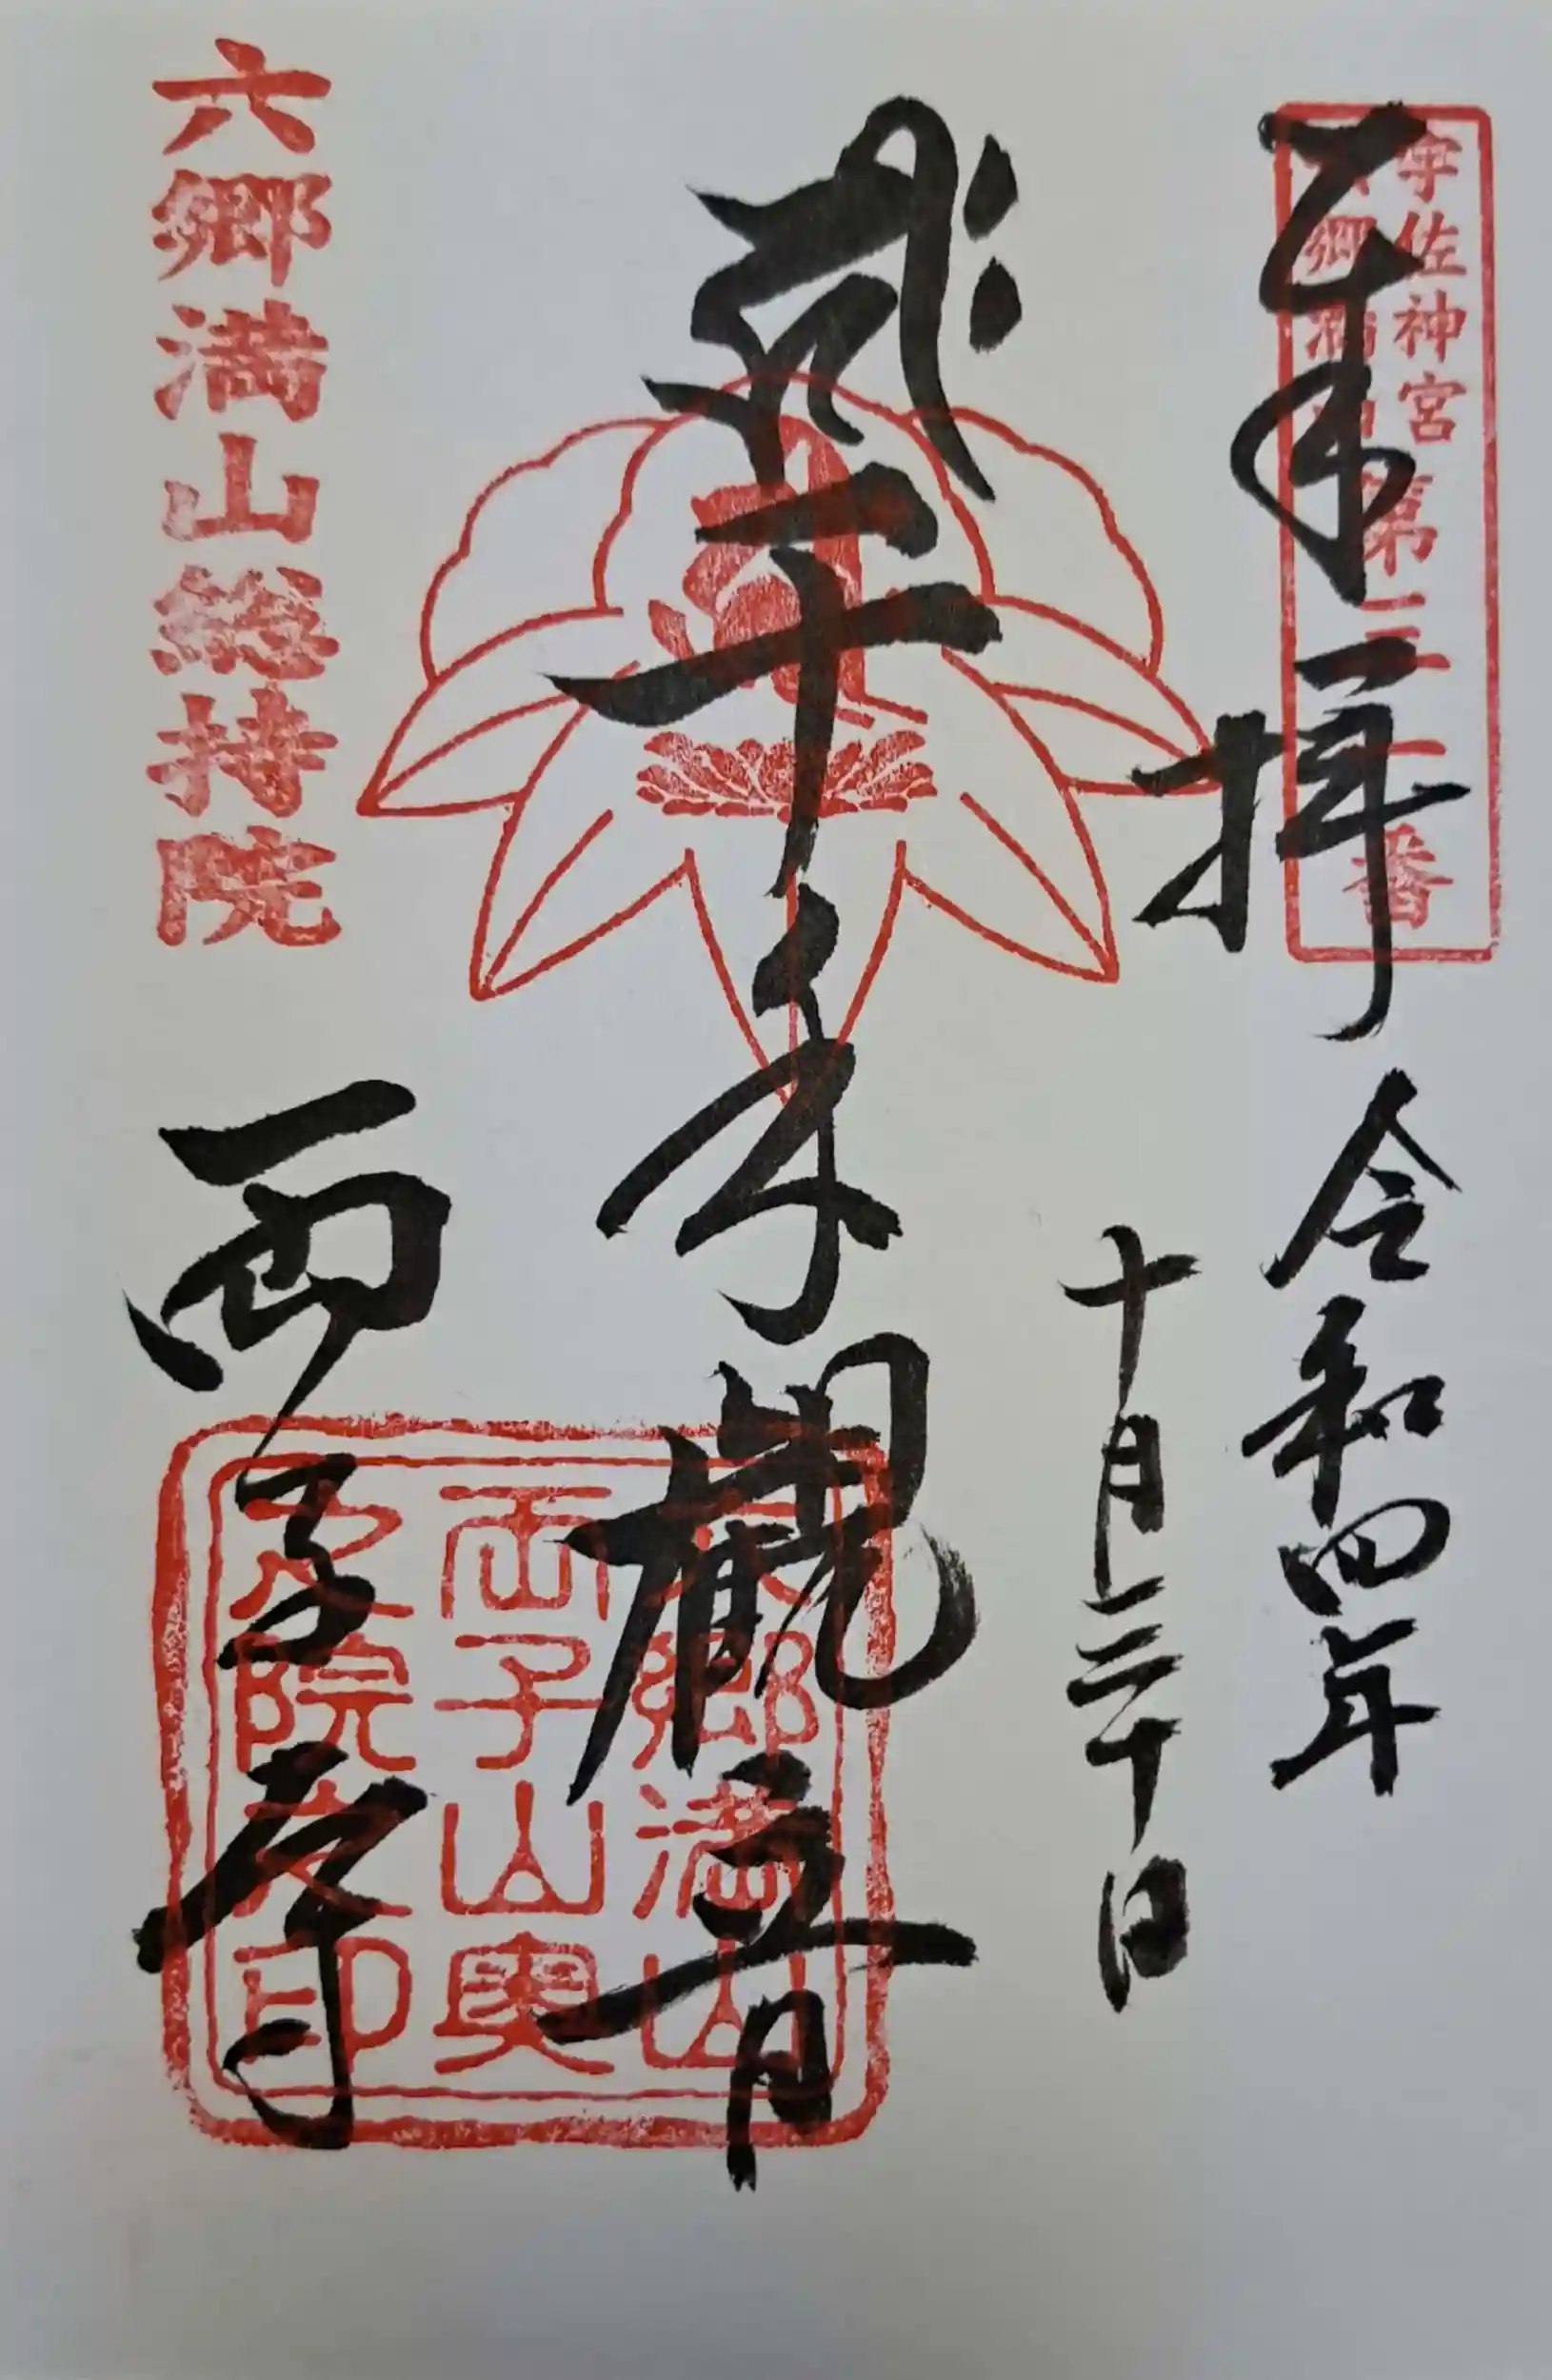 奉拝
宇佐神宮
六郷満山
第三二番
令和四年
十月三十日
千手観音
六郷満山総持院
両子寺
六郷満山
両子山奥
之院
印